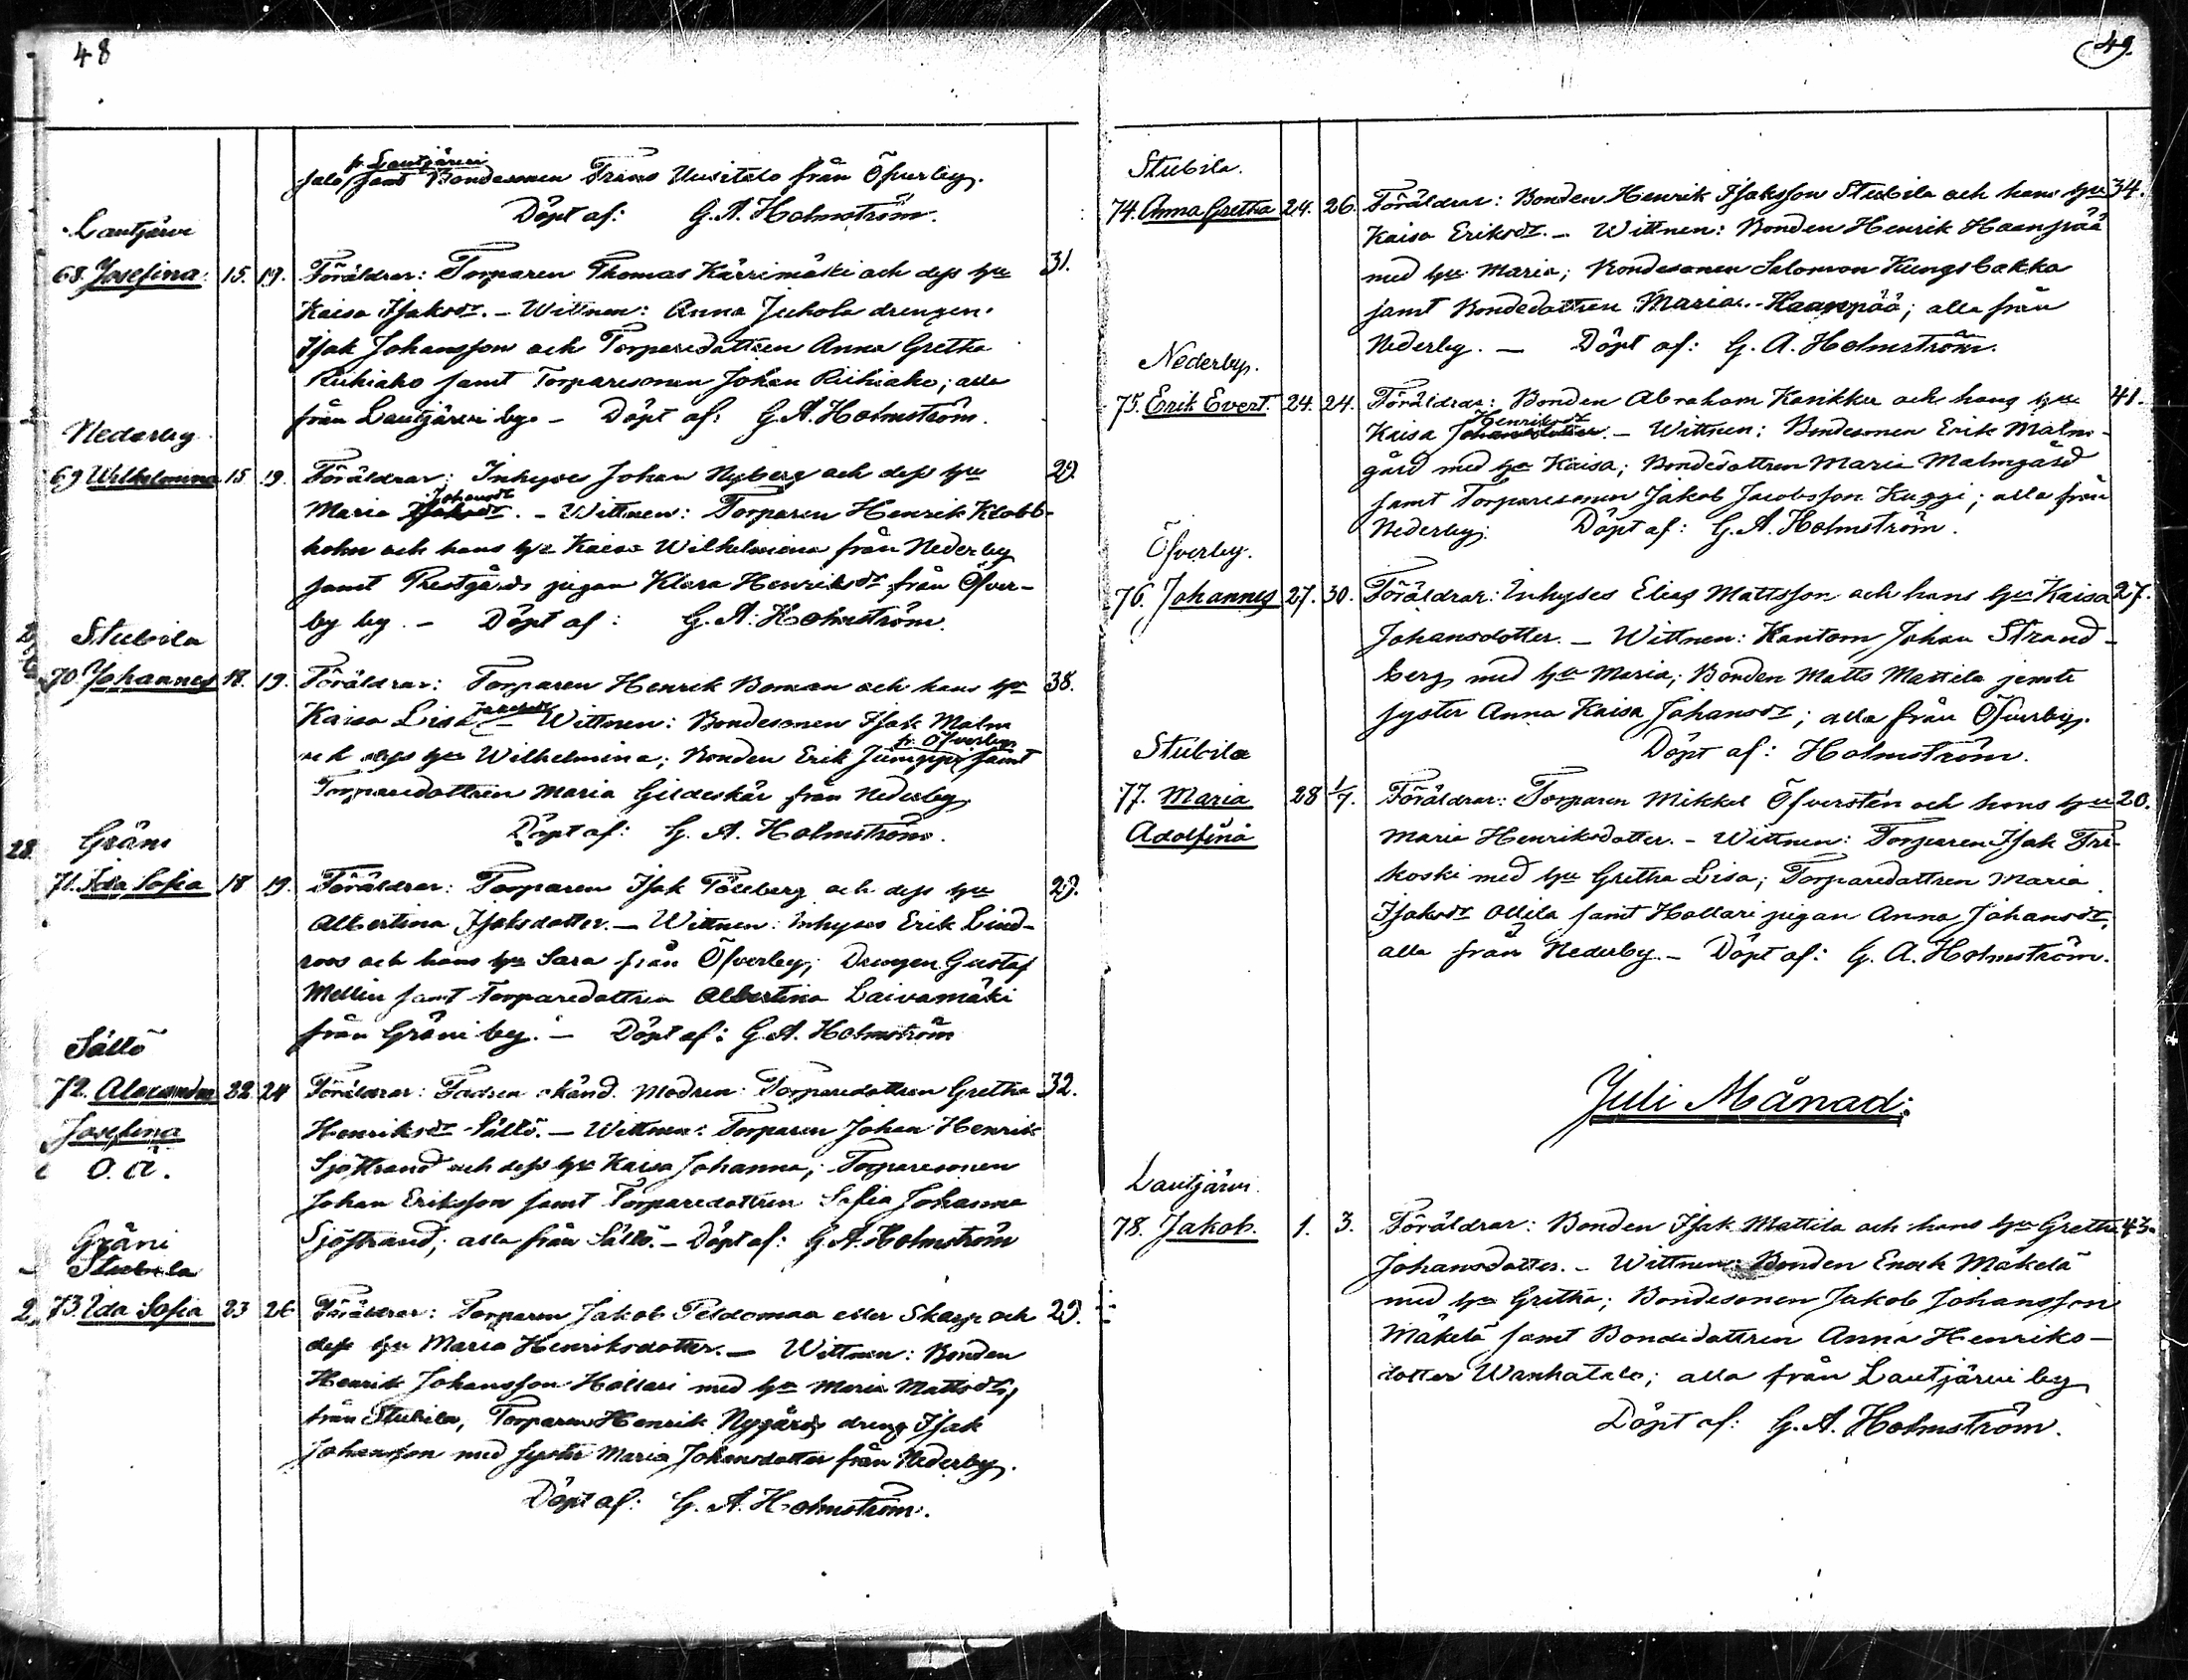 48
fr. Lautjärvi
salo, samt Bondesonen Frans Uusitalo från Öfverby.
Döpt af: G. A. Holmström.
Lautjärvi
68. Josefina. 15. 19. Föräldrar: Torparen Thomas Kärrimäki och dess hu 31.
Kaisa Isaksdr. – Wittnen: Anna Juhola drengen
Isak Johansson och Torparedottren Anna Gretha
Riihiaho samt Torparesonen Johan Riihiaho; alla
från Lautjärvi by. – Döpt af: G. A. Holmström.
Nederby
69 Wilhelmina 15 19. Föräldrar: Inhyse Johan Nyberg och dess hu 29.
Johansdr
Maria Isaksdr. – Wittnen: Torparen Henrik Klobb-
holm och hans hu Kaisa Wilhelmina från Nederby
samt Prestgårds pigan Klara Henriksdr från Öfver-
by by. – Döpt af: G. A. Holmström.
Stubila
70. Johannes 18. 19. Föräldrar: Torparen Henrik Boman och hans hu 38.
Kaisa Lisa – Wittnen: Bondesonen Isak Malm
fr. Öfverby
och dess hu Wilhelmina; Bonden Erik Jumppi, samt
Torparedottren Maria Gildeskär från Nederby
Döpt af: G. A. Holmström.
28. Gräni
71. Ida Sofia 18 19. Föräldrar: Torparen Isak Töleberg och dess hu 29.
Albertina Isaksdotter. – Wittnen: Inhyses Erik Lind-
roos och hans hu Sara från Öfverby; Drengen Gustaf
Mellin samt Torparedottren Albertina Laivamäki
från Gräni by. – Döpt af: G. A. Holmström
Sältö
72. Alexandra 22. 24 Föräldrar: Fadren okänd. Modren: Torparedottren Gretha 32.
Josefina
O. ä.
Henriksdr Sältö. – Wittnen: Torparen Johan Henrik
Sjöstrand och dess hu Kaisa Johanna; Torparesonen
Johan Eriksson samt Torparedottren Sofia Johanna
Sjöstrand; alla från Sältö. – Döpt af: G. A. Holmström
Gräni
Stubila
73. Ida Sofia 23 26 Föräldrar: Torparen Jakob Peldomaa eller Skarp och 29.
dess hu Maria Henriksdotter. – Wittnen: Bonden
Henrik Johansson Hallari med hu Maria Mattsdr,
från Stubila, Torparen Henrik Nygårds dreng Isak
Johansson med syster Maria Johansdotter från Nederby.
Döpt af: G. A. Holmström.
49.
Stubila.
74. Anna Gretha 24. 26. Föräldrar: Bonden Henrik Isaksson Stubila och hans hu 34.
Kaisa Eriksdr. – Wittnen: Bonden Henrik Haanpää
med hu Maria; Bondesonen Salomon Kungsbakka
samt Bondedottren Maria Haanpää; alla från
Nederby. – Döpt af: G. A. Holmström.
Nederby.
75. Erik Evert. 24. 24. Föräldrar: Bonden Abraham Karikka och hans hu 41.
Henriksdr
Kaisa Johansdotter. – Wittnen: Bondesonen Erik Malm-
gård med hu Kaisa; Bondedottren Maria Malmgård
samt Torparesonen Jakob Jacobsson Kuggi; alla från
Nederby. Döpt af: G. A. Holmström.
Öfverby.
76. Johannes 27. 30. Föräldrar: Inhyses Elias Mattsson och hans hu Kaisa 27.
Johansdotter. – Wittnen: Kantorn Johan Strand-
berg med hu Maria; Bonden Matts Mattila jemte
syster Anna Kaisa Johansdr; alla från Öfverby.
Döpt af: Holmström.
Stubila
77. Maria 28 1/7. Föräldrar: Torparen Mikkel Öfverstén och hans hu 20.
Adolfina
Maria Henriksdotter. – Wittnen: Torparen Isak Fri-
koski med hu Gretha Lisa; Torparedottren Maria
Isaksdr Ollila samt Hallari pigan Anna Johansdr,
alla från Nederby. – Döpt af: G. A. Holmström.
Juli Månad:
Lautjärvi.
78. Jakob. 1. 3. Föräldrar: Bonden Isak Mattila och hans hu Gretha 43.
Johansdotter. – Wittnen: Bonden Enoch Mäkelä
med hu Gretha; Bondesonen Jakob Johansson
Mäkelä samt Bondedottren Anna Henriks-
dotter Wanhatalo; alla från Lautjärvi by
Döpt af: G. A. Holmström.